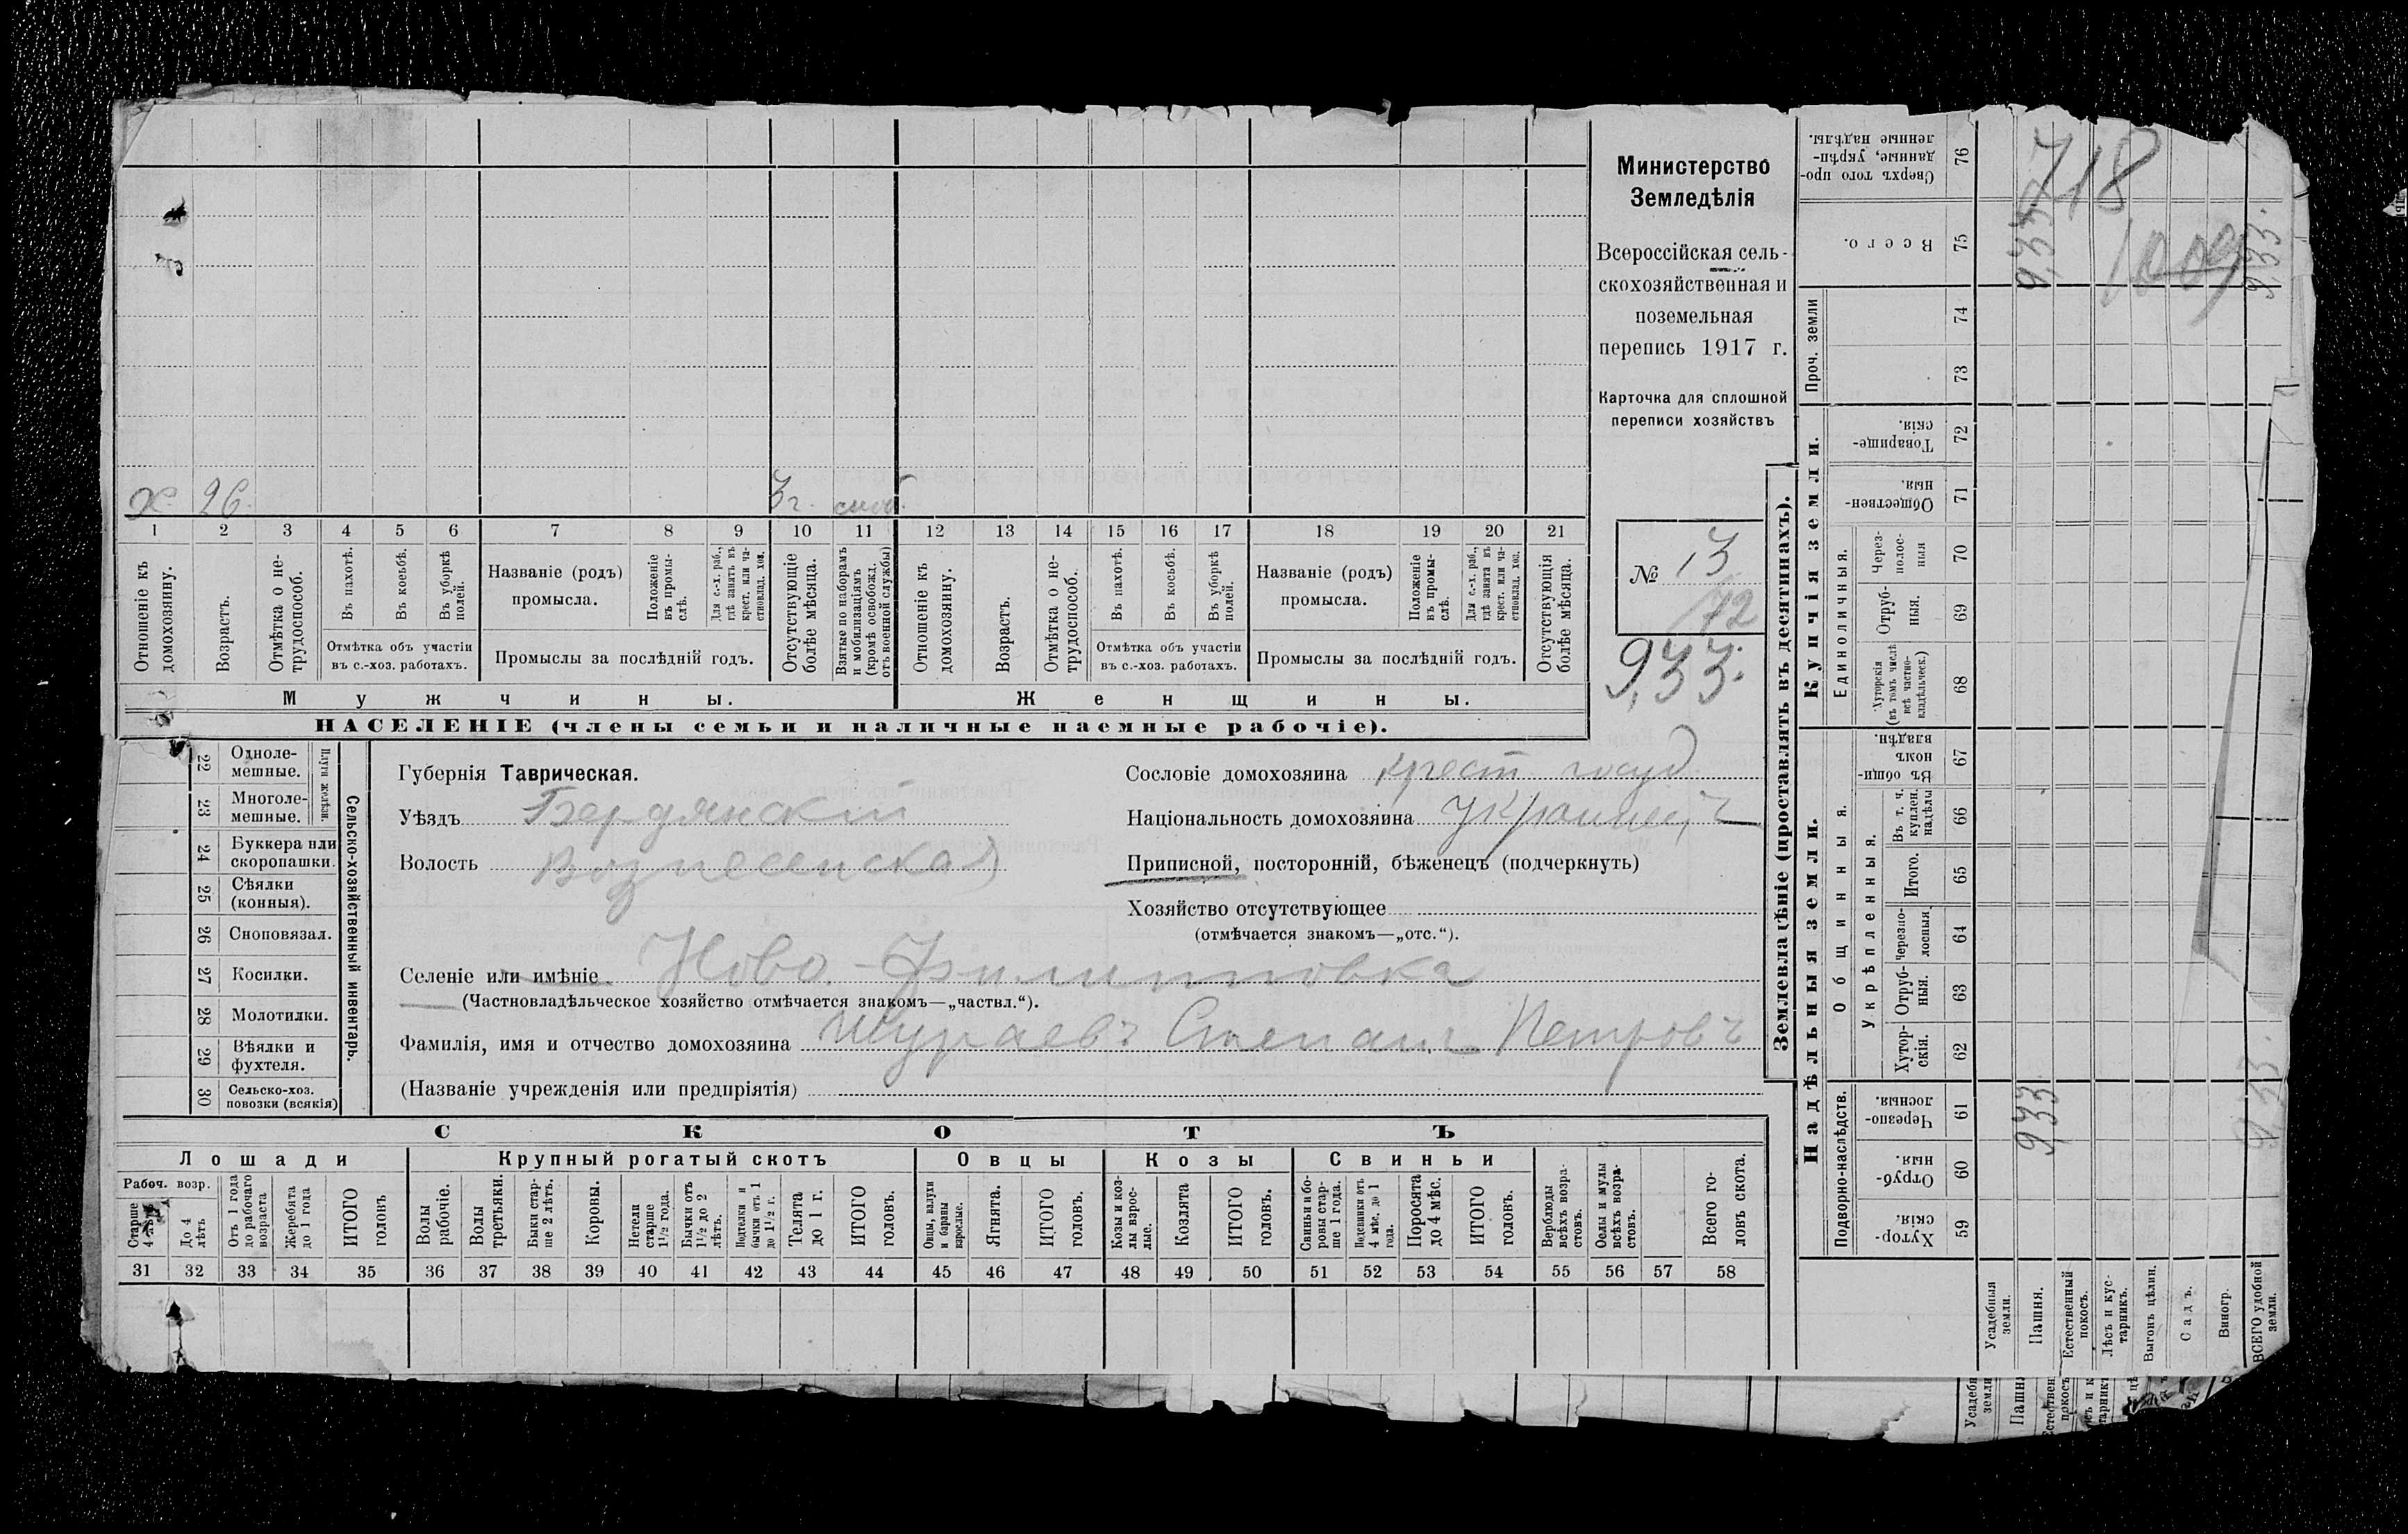 Х. 26. 3 г. моб.
1 2 3 4 5 6 7 8 9 10 11 12 13 14 15 16 17 18 19 20 21
Отношеніе къ домохозяину.
Возрастъ.
Отмѣтка о нетрудоспособ.
Въ пахотѣ.
Въ косьбѣ.
Въ уборкѣ полей.
Отмѣтка объ участіи
въ с.-хоз. работахъ.
Названіе (родъ)
промысла.
Положеніе въ промыслѣ.
Для с.-х. раб., гдѣ занятъ въ крест. или частновлад. хоз.
Промыслы за послѣдній годъ.
Отсутствующіе болѣе мѣсяца.
Взятые по наборамъ и мобилизаціямъ (кромѣ освобожд. отъ военной службы)
Отношеніе къ домохозяину.
Возрастъ.
Отмѣтка о нетрудоспособ.
Въ пахотѣ.
Въ косьбѣ.
Въ уборкѣ полей.
Отмѣтка объ участіи
въ с.-хоз. работахъ.
Названіе (родъ)
промысла.
Положеніе въ промыслѣ.
Для с.-х. раб., гдѣ занята въ крест. или частновлад. хоз.
Промыслы за послѣдній годъ.
Отсутствующія болѣе мѣсяца.
Мужчины. Женщины.
НАСЕЛЕНІЕ (члены семьи и наличные наемные рабочіе).
Министерство
Земледѣлія
Всероссійская сель-
скохозяйственная и
поземельная
перепись 1917 г.
Карточка для сплошной
переписи хозяйствъ
№ 13
72
9,33.
22 Одноле-
мешные.
23 Многоле-
мешные.
Плуги желѣзн.
24 Буккера или
скоропашки.
25 Сѣялки
(конныя).
26 Сноповязал.
27 Косилки.
28 Молотилки.
29 Вѣялки и
фухтеля.
30 Сельско-хоз.
повозки (всякія)
Сельско-хозяйственный инвентарь.
Губернія Таврическая.
Уѣздъ Бердянский
Волость Вознесенская
Селеніе или имѣніе Ново-Филипповка
(Частновладѣльческое хозяйство отмѣчается знакомъ—„частвл.“).
Фамилія, имя и отчество домохозяина Шураевъ Степанъ Петровъ
(Названіе учрежденія или предпріятія)
Сословіе домохозяина крест. госуд.
Національность домохозяина украинецъ
Приписной, посторонній, бѣженецъ (подчеркнуть)
Хозяйство отсутствующее
(отмѣчается знакомъ—„отс.“).
СКОТЪ
Лошади Крупный рогатый скотъ Овцы Козы Свиньи
Рабоч. возр.
Старше 4 лѣтъ
До 4 лѣтъ
Отъ 1 года до рабочаго возраста
Жеребята до 1 года
ИТОГО головъ
Волы рабочіе.
Волы третьяки.
Быки старше 2 лѣтъ.
Коровы.
Нетели старше 1½ года.
Бычки отъ 1½ до 2 лѣтъ.
Подтелки и бычки отъ 1 до 1½ г.
Телята до 1 г.
ИТОГО головъ.
Овцы, валухи и бараны взрослые.
Ягнята.
ИТОГО головъ.
Козы и козлы взрослые.
Козлята
ИТОГО головъ.
Свиньи и боровы старше 1 года.
Подсвинки отъ 4 мѣс. до 1 года.
Поросята до 4 мѣс.
ИТОГО головъ.
Верблюды всѣхъ возрастовъ.
Ослы и мулы всѣхъ возрастовъ.
Всего головъ скота.
31 32 33 34 35 36 37 38 39 40 41 42 43 44 45 46 47 48 49 50 51 52 53 54 55 56 57 58
Землевладѣніе (проставлять въ десятинахъ).
Надѣльныя земли. Купчія земли.
Подворно-наслѣдств.
Общинныя.
Укрѣпленныя.
Единоличныя.
Проч. земли
59 Хутор-
скія.
60 Отруб-
ныя.
61 Черезпо-
лосныя.
62 Хутор-
скія.
63 Отруб-
ныя.
64 Черезпо-
лосныя.
65 Итого.
66 Въ т. ч. куплен. надѣлы
67 Въ общин-
номъ владѣн.
68 Хуторскія (въ томъ числѣ всѣ частновладѣльческ.)
69 Отруб-
ныя.
70 Черезполос-
ныя
71 Обществен-
ныя.
72 Товарище-
скія.
73
74
75 Всего.
76 Сверхъ того про-
данные, укрѣп-
ленные надѣлы.
Усадебныя земли.
Пашня.
Естественный покосъ.
Лѣсъ и кустарникъ.
Выгонъ цѣлин.
Садъ.
Виногр.
ВСЕГО удобной земли.
718
1009
9,33
9,33.
9,33
9,33.